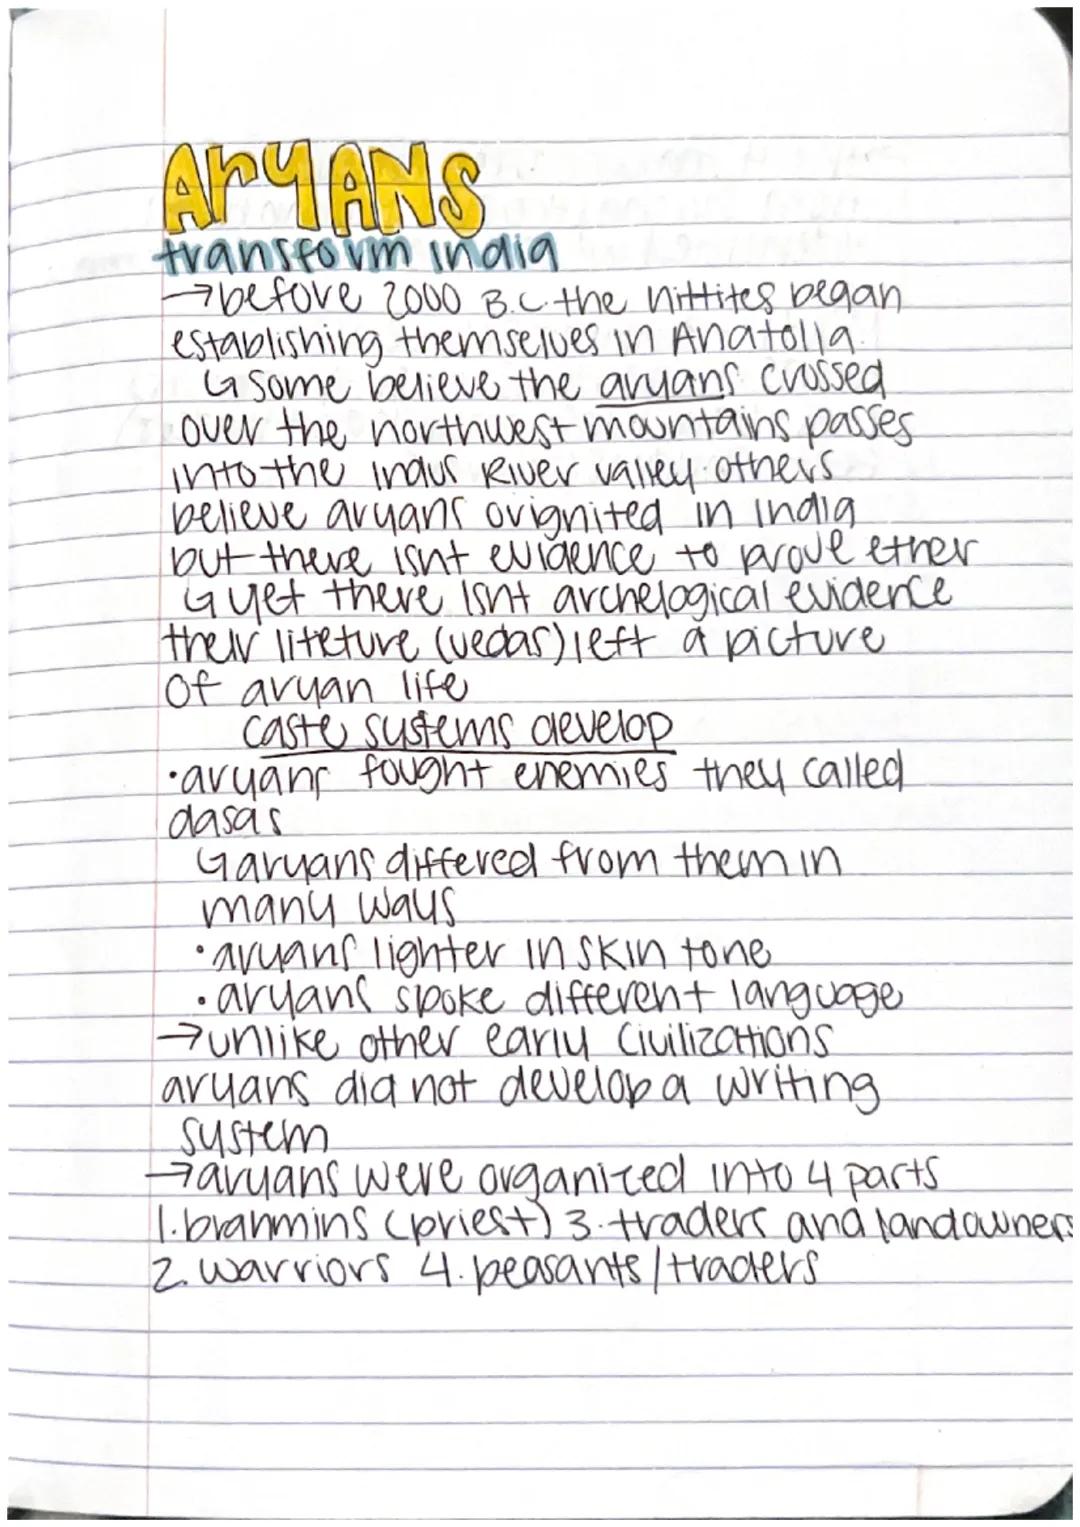 ARYANS
transform india
→before 2000 B.C. the hittites began
establishing themselves in Anatolia.
↳some believe the aryans crossed
over the northwest mountains passes
into the indus River valley. others
believe aryans orignited in india
but there isnt evidence to prove ether
↳yet there isnt archelogical evidence
their liteture (vedas) left a picture
of aryan life
caste systems develop
•aryans fought enemies they called
dasas
↳aryans differed from them in
many ways
•aryans lighter in skin tone
•aryans spoke different language
→unlike other early civilizations
aryans did not develop a writing
system
→aryans were organized into 4 parts
1. brahmins (priest) 3. traders and landowners
2. warriors 4. peasants/traders